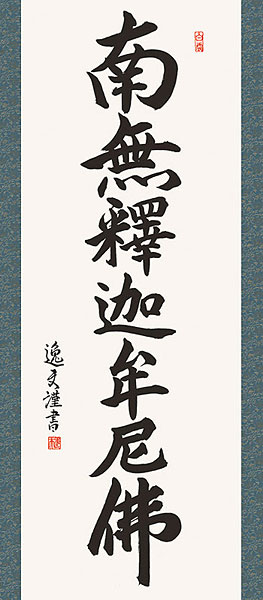 南無釋迦牟尼佛
逸史謹書